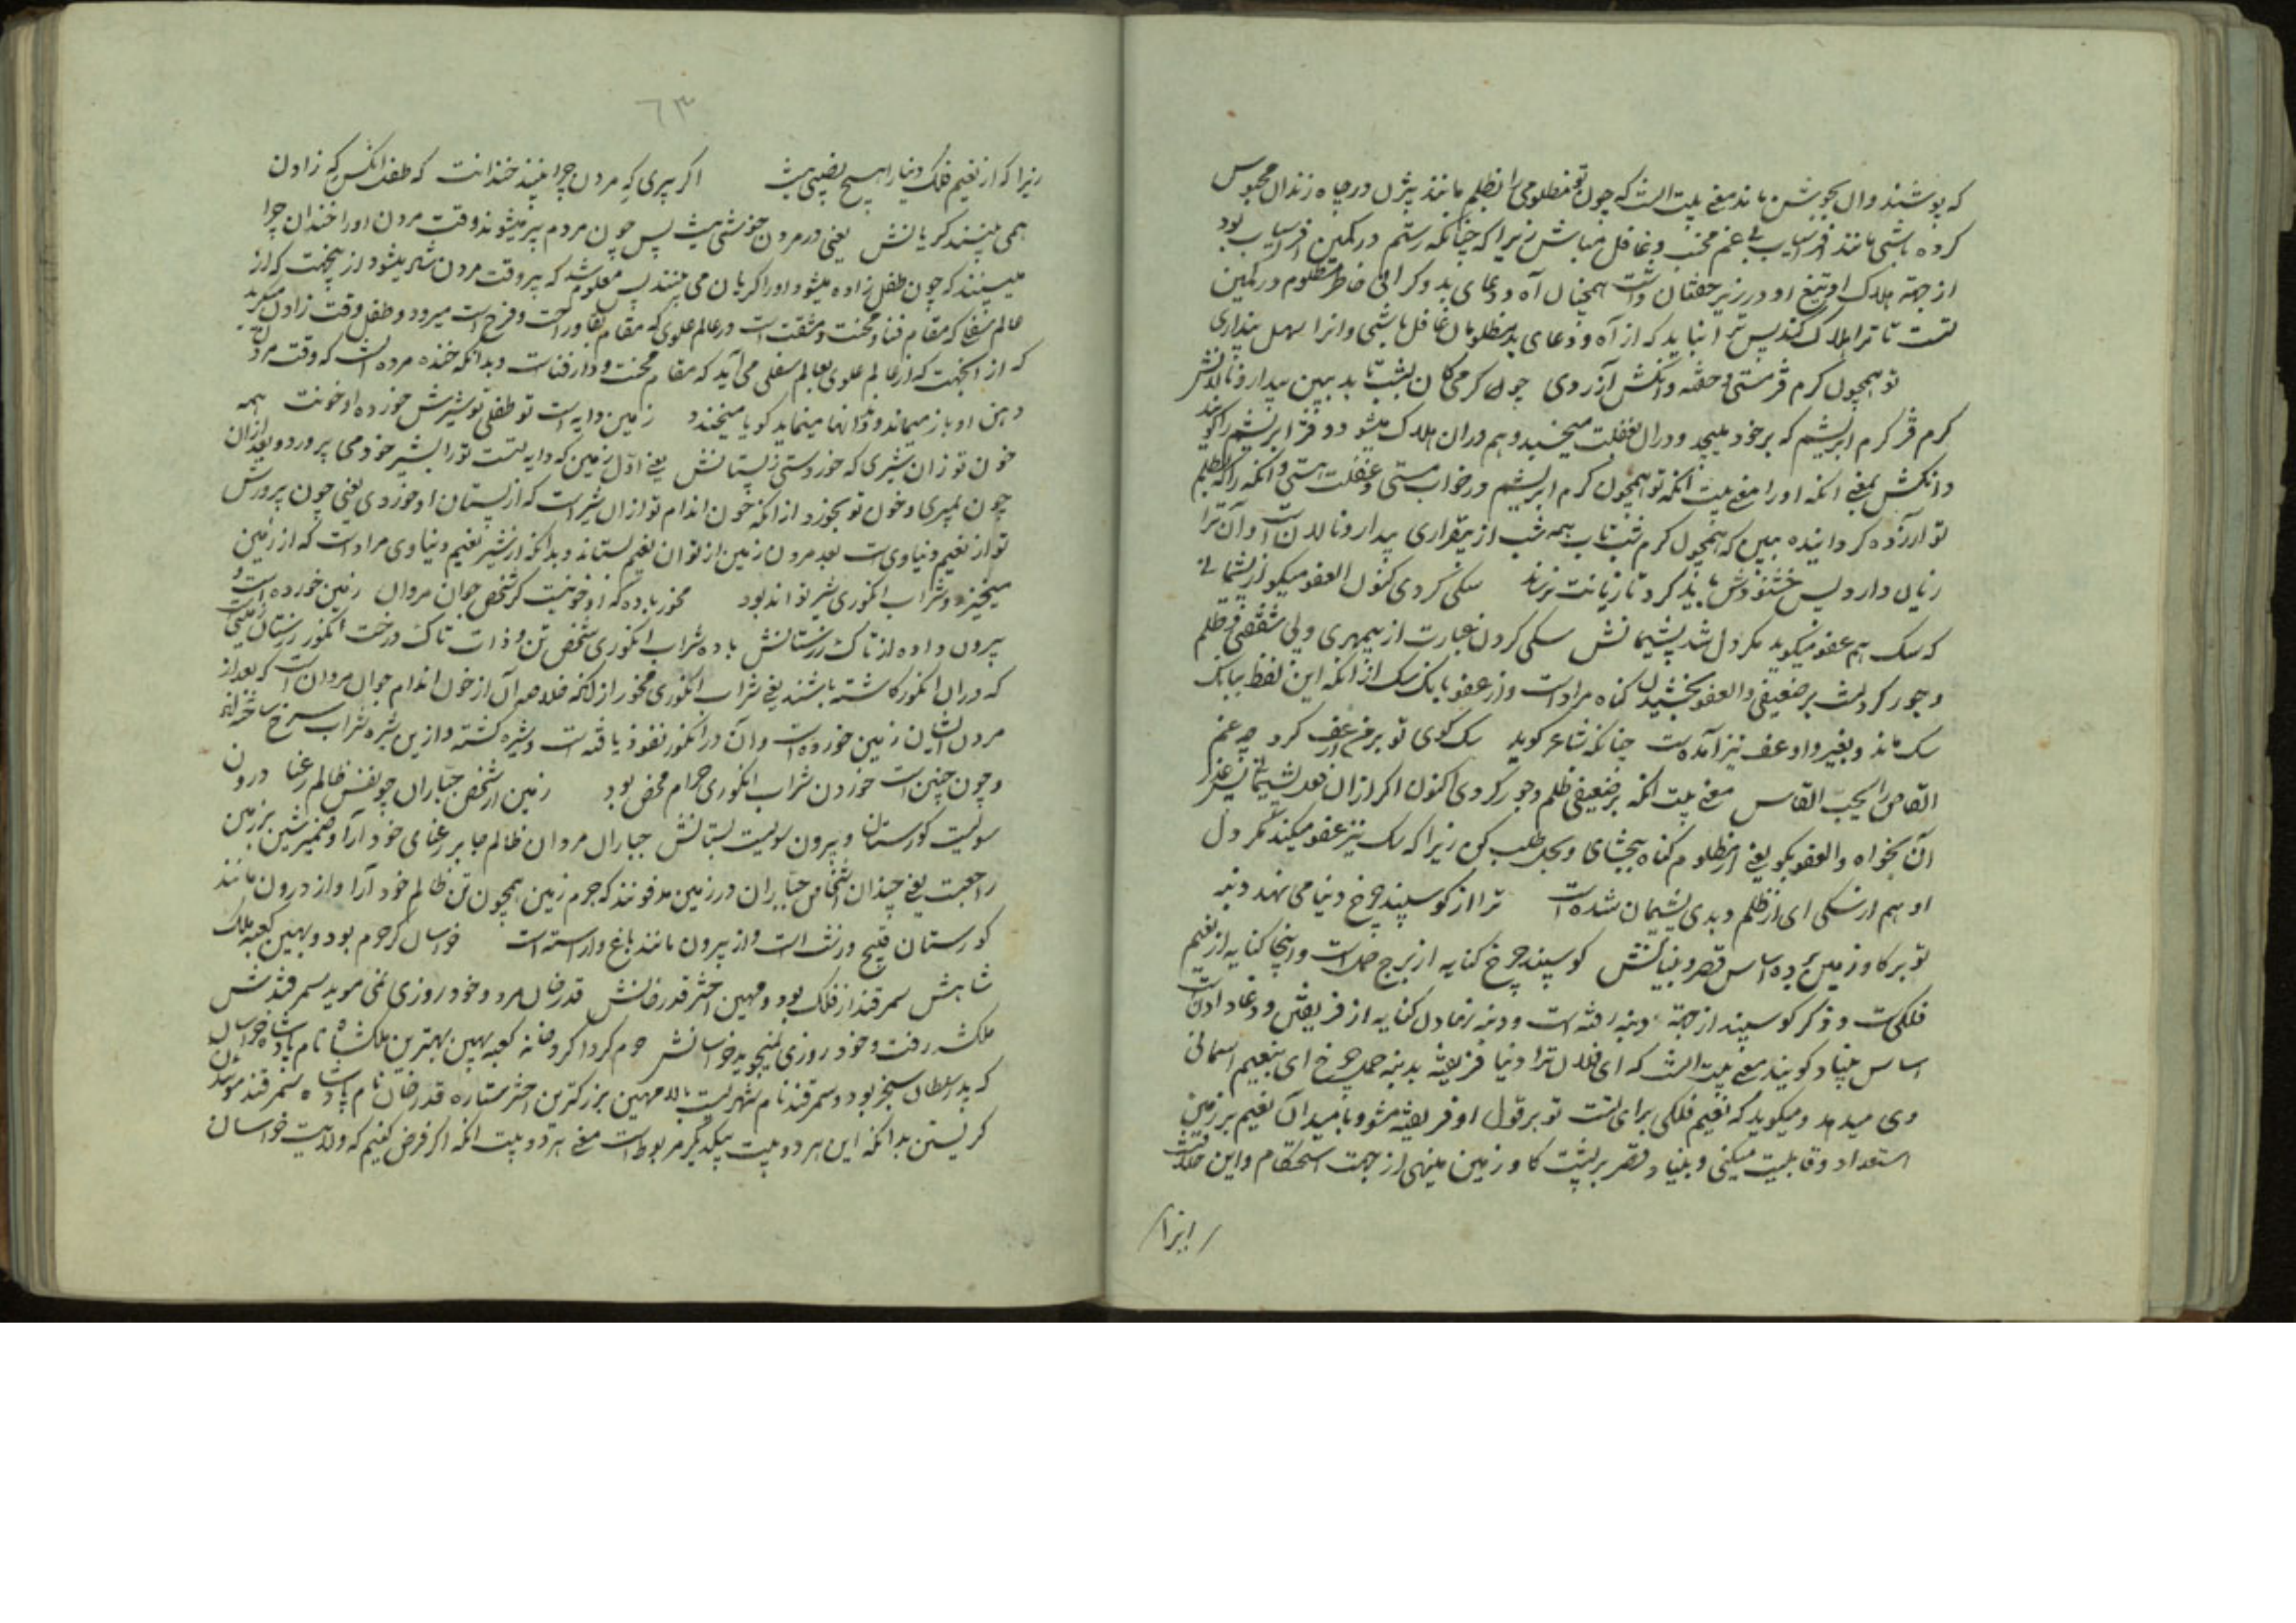 که بپوشند وان بجوشن ماند معنی بیت انست که چون تو مظلومی را بظلم مانند بیژن در چاه زندان محبوس
کرده باشی مانند افراسیاب بی غم مخسب و غافل مباش زیرا که چنانکه رستم در کمین افراسیاب بود
از جهة هلاک او تیغ او در زیر خفتان داشت همچنان آه و دعای بد و کرانی خاطر مظلوم در کمین
تست تا ترا هلاک کند پس ترا نباید که از آه و دعای بد مظلومان غافل باشی وانرا سهل پنداری
تو همچون کرم قز مستی و خفته وانکش آزردی چون کرمی کان بشب تابد ببین بیدار و نالانش
کرم قز کرم ابریشم که بر خود میپیچد و دران بغفلت میخسبد و هم دران هلاک میشود و قز ابریشم را کویند
وانکش بمعنی انکه اورا معنی بیت انکه تو همچون کرم ابریشم در خواب مستی و غفلت هستی و انکه را که بظلم
تو آزرده کردانیده ببین که همچون کرم شب تاب همه شب از بیقراری بیدار و نالانست و آن ترا
زیان دارد پس خشنودش باید کرد تا زیانت نرساند سکی کردی کنون العفو میکو از پشیمانی
که سک هم عفو میکوید مکر دل شد پشیمانش سکی کردن عبارت از بیمهری و بی شفقتی و ظلم
و جور کردنست بر ضعیفی والعفو بخشیدن کناه مرادست و از عفو بانک سک از انکه این لفظ ببانک
سک ماند و بغیر واو عف نیز آمدست چنانکه شاعر کوید سک کوی تو بر من ار عف کرد چه غم
القاص لا یحب القاص معنی بیت انکه بر ضعیفی ظلم و جور کردی اکنون اکر ازان فعل پشیمانی عذر
آن بخواه والعفو بکو یعنی از مظلوم کناه ببخشای و بحل طلب کن زیرا که سک نیز عفو میکند مکر دل
او هم از سکی ای از ظلم و بدی پشیمان شدست ترا از کوسپند چرخ دنیا می نهد دنبه
تو بر کاو زمین برده اساس قصر و بنیانش کوسپند چرخ کنایه از برج حمل است و اینجا کنایه از نعیم
فلکیست و ذکر کوسپند از جهة دنبه رفته است و دنبه نهادن کنایه از فریفتن و دغا دادنست
اساس بنیاد کویند معنی بیت انست که ای فلان ترا دنیا فریفته بدنبه حمل چرخ ای بنعیم اسمانی
وی میدهد و میکوید که نعیم فلکی برای تست تو بر قول او فریفته مشو و بامید آن نعیم بر زمین
استعداد و قابلیت میکنی و بنیاد قصر بر پشت کاو زمین مینهی از جهت استحکام و این خلافست
زیرا
٦٣
زیرا که از نعیم فلک دنیا را هیچ نصیبی نیست اکر پیری که مردن چرا بیند خندانت که طفل انکس که زادن
همی بینند کریانش یعنی در مردن خوشی نیست پس چون مردم پیر میشوند وقت مردن اورا خندان چرا
میبینند که چون طفل زاده میشود اورا کریان می بینند پس معلوم شد که پیر وقت مردن شاد میشود ازینجهت که از
عالم سفلی که مقام فنا و محنت و مشقت است در عالم علوی که مقام بقا و راحت و فرح است میرود و طفل وقت زادن میکرید
که از انجهت که از عالم علوی بعالم سفلی می آید که مقام محنت و دار فناست و بدانکه خنده مرده انست که وقت مردن
دهن او باز میماند و دندانها مینماید کویا میخندد زمین دایه است تو طفلی تو شیرش خورده او خونت همه
خون تو زان شیری که خوردستی ز پستانش یعنی اول زمین که دایه تست تورا بشیر خود می پرورد و بعد ازان
چون بمیری و خون تو بخورد از انکه خون اندام تو ازان شیراست که از پستان او خوردی یعنی چون پرورش
تو از نعیم دنیاویست بعد مردن زمین از تو ان نعیم بستاند و بدانکه از شیر نعیم دنیاوی مرادست که از زمین
میخیزد و شراب انکوری شیر تواند بود مخور باده که او خونیست کز شخص جوان مردان زمین خورده است و
بیرون داده از تاک رزستانش باده شراب انکوری شخص تن و ذات تاک درخت انکور رزستان زمینی
که دران انکور کاشته باشند یعنی شراب انکوری مخور از انکه خلاصه آن از خون اندام جوان مردانست که بعد از
مردن ایشان زمین خورده است و آن در انکور نفوذ یافته است و شیره کشته و ازین شیره شراب سرخ ساخته اند
و چون چنین است خوردن شراب انکوری حرام محض بود زمین از شخص جباران چو نفس ظالم رعنا درون
سو نیست کورستان و بیرون سو نیست بستانش جباران مردان ظالم جابر رعنای خود آرا و ضمیر شین بزمین
راجعست یعنی چندان اشخاص جباران در زمین مدفونند که جرم زمین همچون تن ظالم خود آرا و از درون مانند
کورستان قبیح و زشت است و از بیرون مانند باغ و اراسته است خراسان کر حرم بود و بهین کعبه ملک
شاهش سمرقند از فلک بود و مهین اختر قدرخانش قدرخان مرد و خود روزی نمی موید سمرقندش
ملکشه رفت و خود روزی نمیجوید خراسانش حرم کرداکرد خانه کعبه بهین بهترین ملکشاه نام پادشاه خراسان
که پدر سلطان سنجر بود و سمرقند نام شهریست مهین بزرکترین اختر ستاره قدرخان نام پادشاه سمرقند مویدن
کریستن بدانکه این هر دو بیت بیکدیکر مربوط است معنی هر دو بیت انکه اکر فرض کنیم که ولایت خراسان